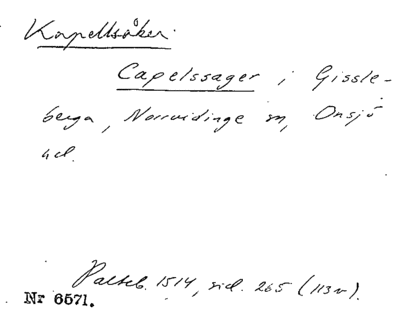 Kapellsåker.
Capelssager i Gissle-
berga, Norrvidinge sn, Onsjö
hd.
Palteb. 1514, sid. 265 (113v).
Nr 6571.